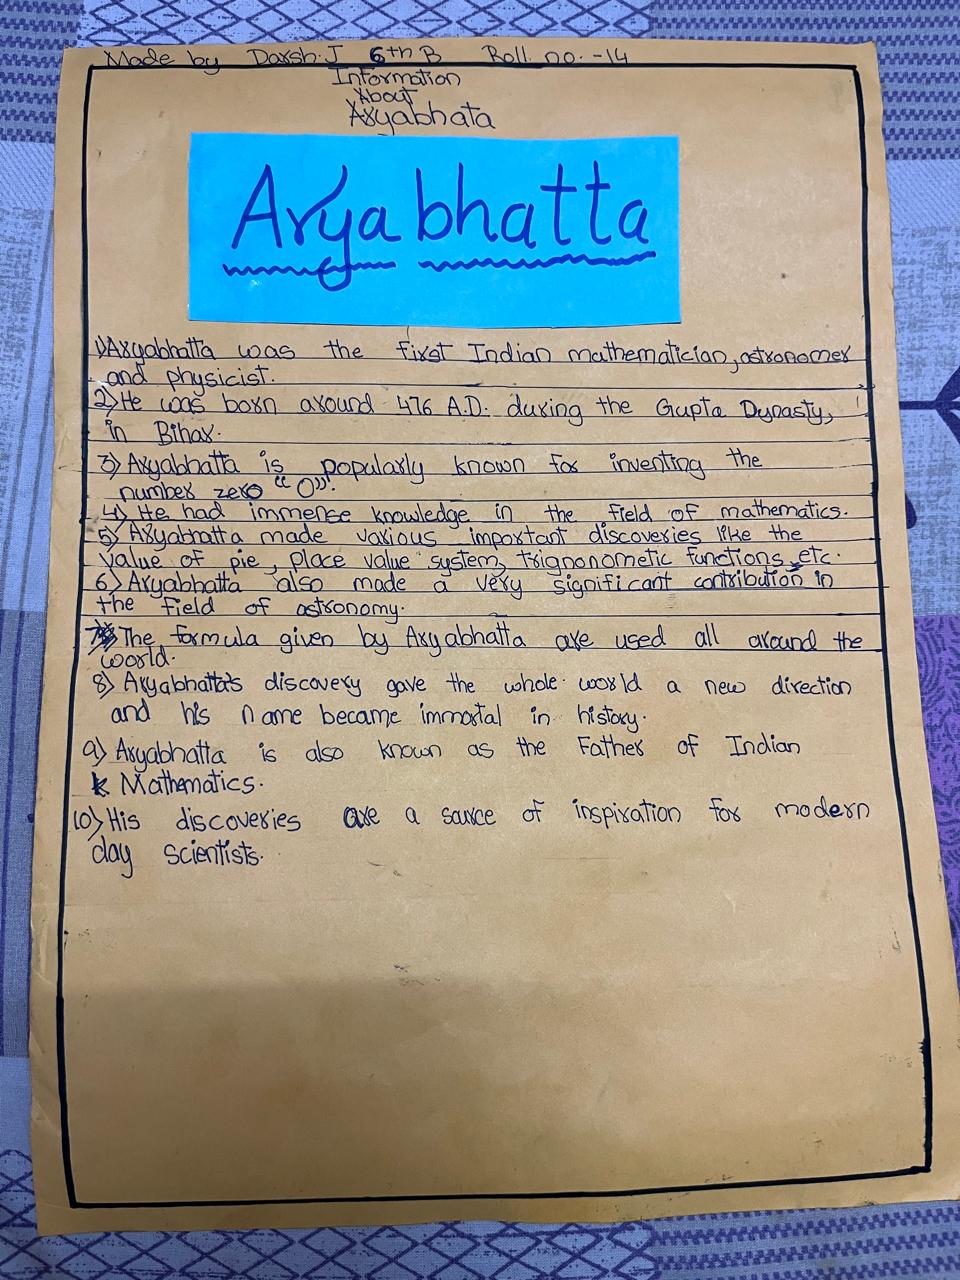 Made by Darsh.J 6th B Roll no.-14
Information
About
Aryabhata
Aryabhatta
1) Aryabhatta was the first Indian mathematician, astronomer
and physicist.
2) He was born around 476 A.D. during the Gupta Dynasty,
in Bihar.
3) Aryabhatta is popularly known for inventing the
number zero "0".
4) He had immense knowledge in the field of mathematics.
5) Aryabhatta made various important discoveries like the
value of pie, place value system, trignonometic functions, etc.
6) Aryabhatta also made a very significant contribution in
the field of astronomy.
7) The formula given by Aryabhatta are used all around the
world.
8) Aryabhatta's discovery gave the whole world a new direction
and his name became immortal in history.
9) Aryabhatta is also known as the Father of Indian
Mathematics.
10) His discoveries are a sarce of inspiration for modern
day scientists.